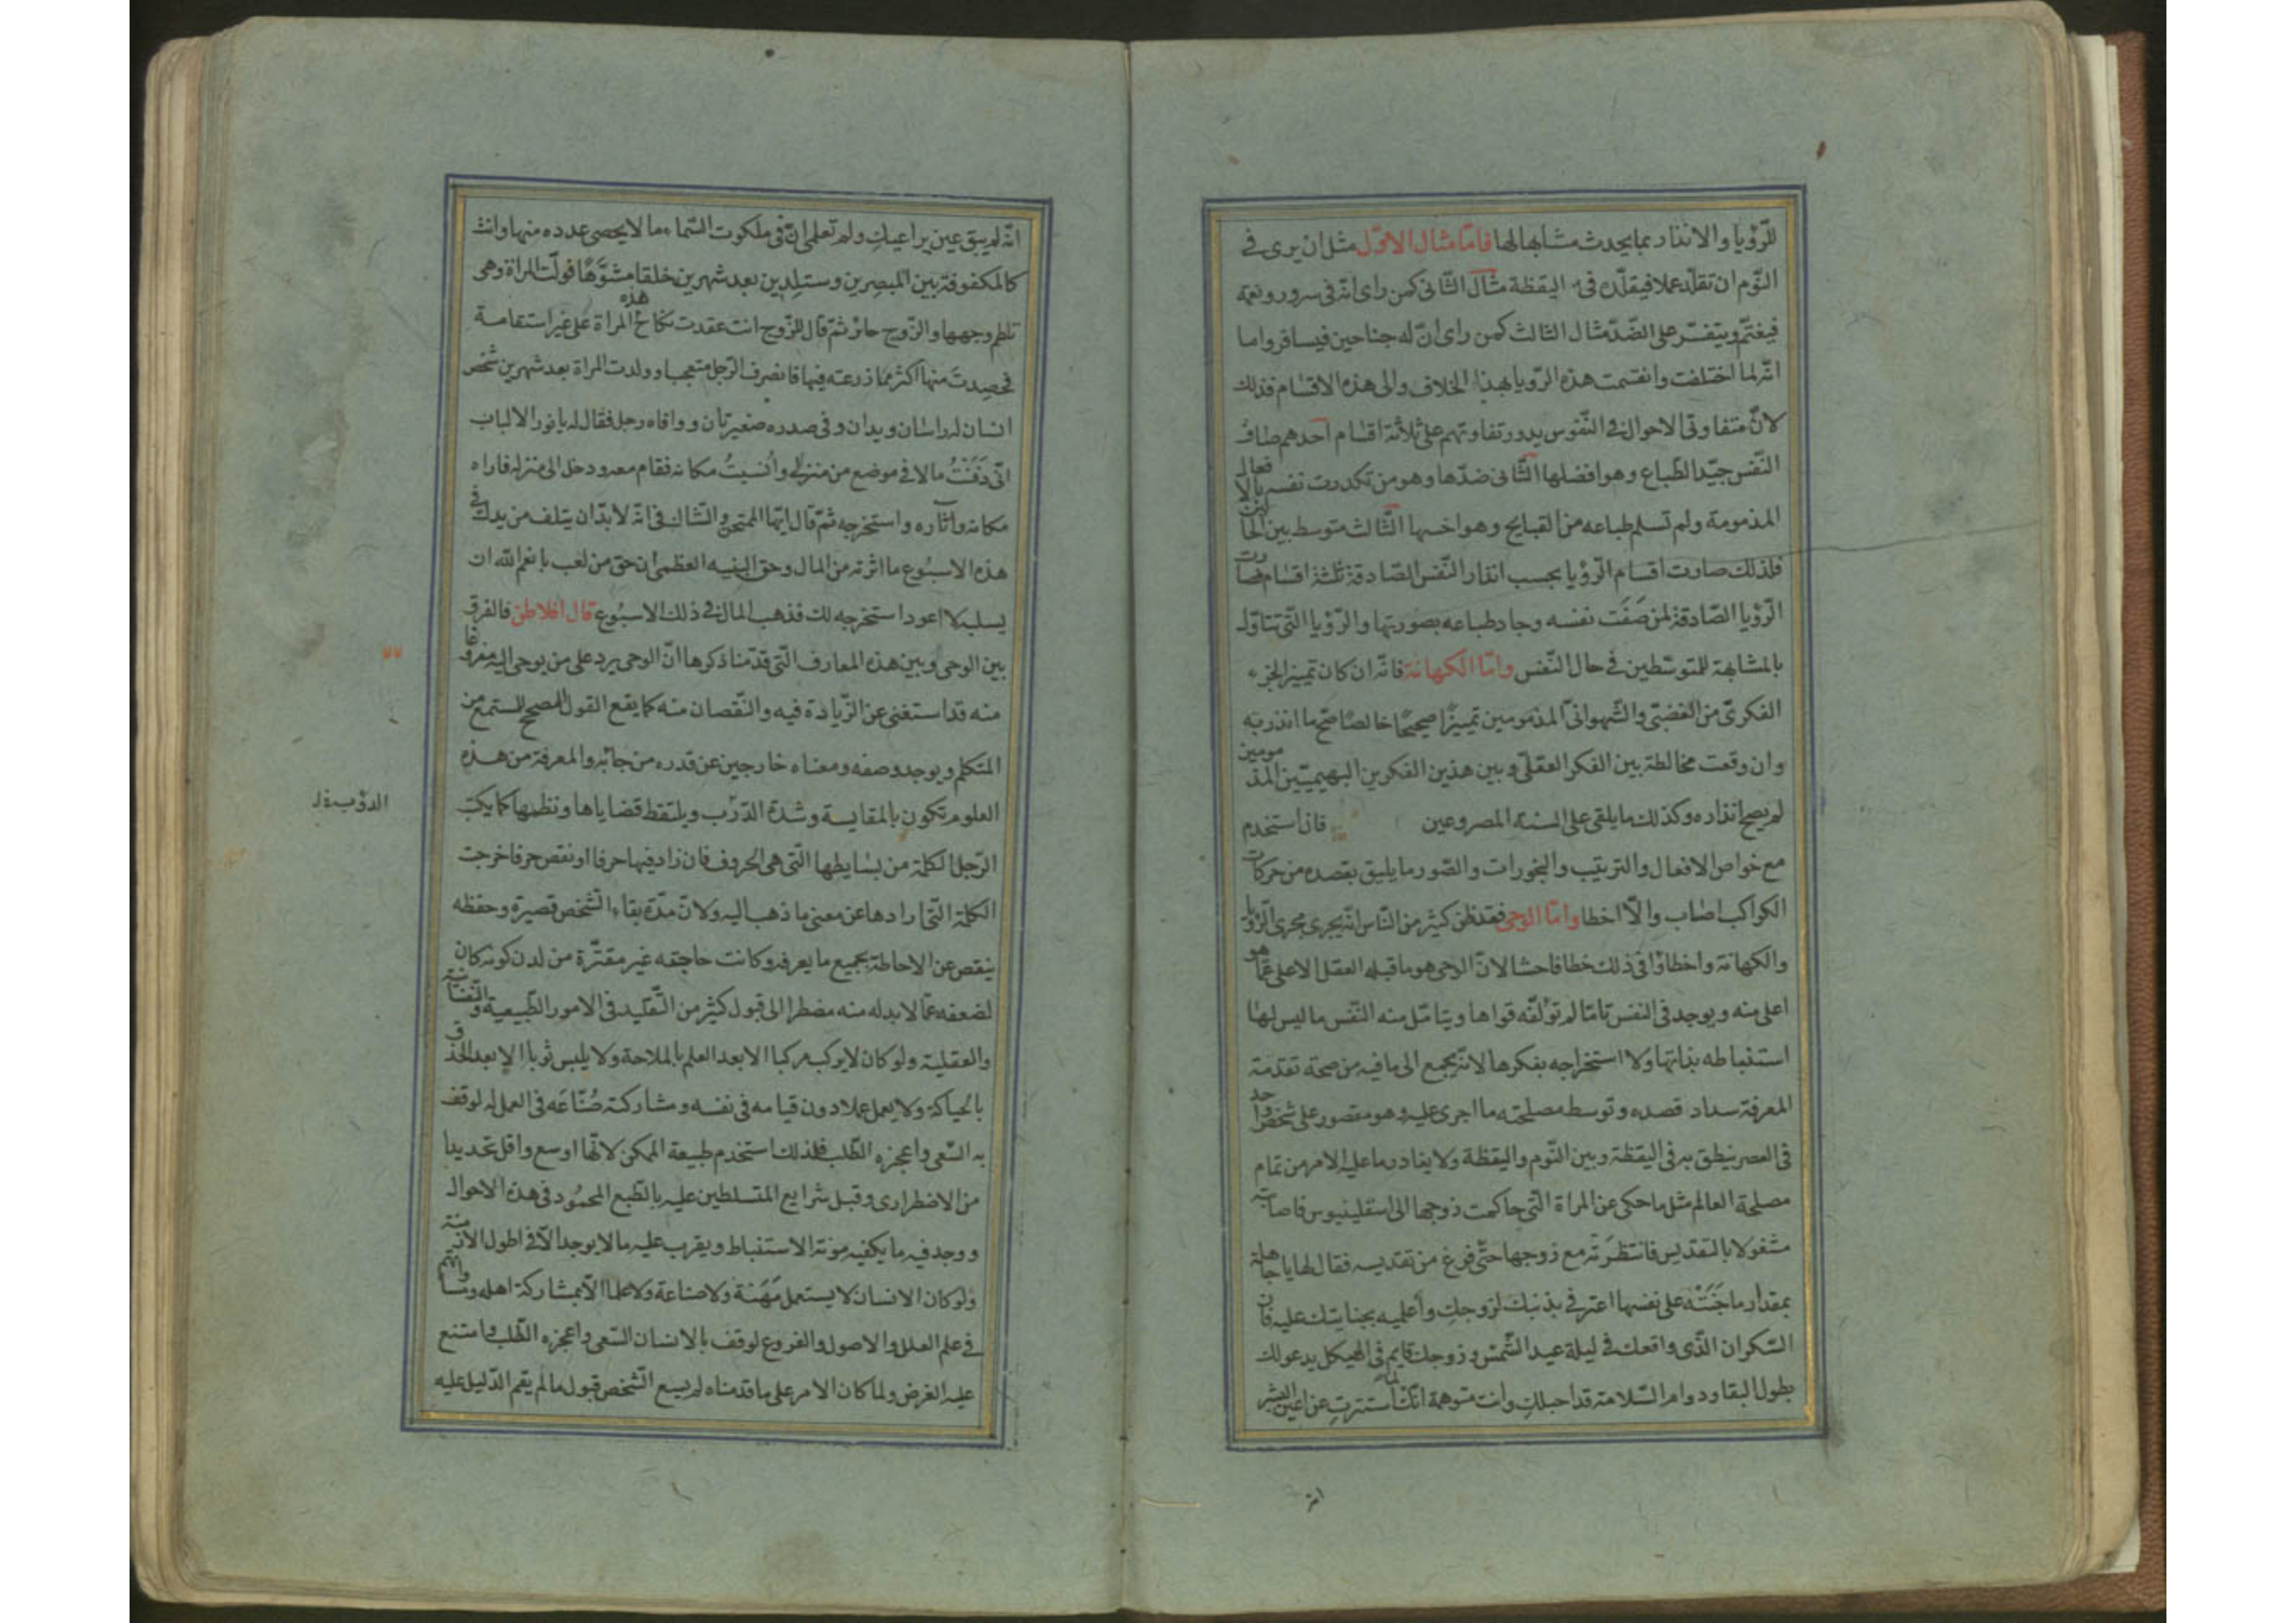 للرّؤيا والانذار بما يحدث مشابها لها فامّا مثال الاوّل مثل ان يرى فى
النّوم ان تقلّد عملا فيقلّده فى اليقظة مثال الثّانى كمن راى انّه فى سرور ونعمة
فيغتمّ ويتفسّر على الضّدّ مثال الثالث كمن راى انّ له جناحين فيسافر واما
انّه لما اختلفت وانقسمت هذه الرّويا بهذا الخلاف والى هذه الاقسام فذلك
لانّ متفاوتى الاحوال فى النّفوس يدور تفاوتهم على ثلاثة اقسام احدهم صافى
النّفس جيّد الطّباع وهو افضلها الثّانى ضدّها وهو من تكدرت نفسه بالافعال
المذمومة ولم تسلم طباعه من القبايح وهو اخسها الثّالث متوسط بين الحالين
فلذلك صارت اقسام الرّؤيا بحسب انذار النّفس الصّادقة ثلثة اقسام فصارت
الرّؤيا الصّادقة لمن صَفَت نفسه وجاد طباعه بصورتها والرّؤيا الّتى تتاوّل
بالمشابهة للمتوسّطين فى حال النّفس وامّا الكهانة فانّه ان كان تمييز الجزء
الفكرىّ من الغضبىّ والشّهوانىّ المذمومين تمييزًا صحيحًا خالصًا صحّ ما انذر به
وان وقعت مخالطة بين الفكر العقلىّ وبين هذين الفكرين البهيميّين المذمومين
لم يصح انذاره وكذلك ما يلقى على السنة المصروعين فاذا استخدم
مع خواص الافعال والترتيب والبخورات والصّور ما يليق بقصده من حركات
الكواكب اصاب والّا اخطا وامّا الوحى فقد ظن كثير من النّاس انّه يجرى مجرى الرّؤيا
والكهانة واخطاؤا فى ذلك خطا فاحشا لانّ الوحى هو ما قبله العقل الاعلى عمّا هو
اعلى منه ويوجد فى النفس تامّا لم تؤلّفه قواها ويتامّل منه النّفس ما ليس لها
استنباطه بذاتها ولا استخراجه بفكرها لانّه يجمع الى ما فيه من صحة تقدمة
المعرفة سداد قصده وتوسط مصلحته ما اجرى عليه وهو مقصور على شخص واحد
فى العصر ينطق به فى اليقظة وبين النّوم واليقظة ولا يغادر ما عليه الامر من تمام
مصلحة العالم مثل ما حكى عن المراة الّتى حاكمت زوجها الى اسقلينيوس فاصابته
مشغولا بالتقديس فانتظَرَتْه مع زوجها حتّى فرغ من تقديسه فقال لها يا جاهلة
بمقدار ما جَنَتْه على نفسها اعترفى بذنبك لزوجكِ وأعلميه بجنايتك عليه فان
السّكران الّذى واقعك فى ليلة عيد الشّمس وزوجك قايم فى الهيكل يدعو لك
بطول البقا ودوام السّلامة قد احبلكِ وانت متوهمة انّك لما استترتِ عن اعين البشر
انه
انّه لم يبق عين يراعيكِ ولم تعلمى انّ فى ملكوت السّماء ما لا يحصى عدده منها وانت
كالمكفوفة بين المبصِرين وستلِدين بعد شهرين خلقا مشوَّهًا فولّت المراة وهى
تلطم وجهها والزّوج حائر ثمّ قال للزّوج انت عقدت نكاح هذه المراة على غير استقامة
فحصدتَ منها اكثر مما زرعته فيها فانصرف الرّجل متعجبا وولدت المراة بعد شهرين شخص
انسان له راسان ويدان وفى صدره صغيرتان ووافاه رجل فقال له يا نور الالباب
انّى دَفَنْتُ مالا فى موضع من منزلى وأنسيتُ مكانه فقام معه ودخل الى منزله فاراه
مكانه واثاره واستخرجه ثمّ قال ايّها الممتحن والشّاك فى انّه لا بدّ ان يتلف من يدك فى
هذه الاسبُوع ما اثرته من المال وحق البنيه العظمى ان حق من لعب بانعم اللّه ان
يسلبه لا اعود استخرجه لك فذهب المال فى ذلك الاسبُوع قال افلاطن فالفرق
بين الوحى وبين هذه المعارف الّتى قدّمنا ذكرها انّ الوحى يرد على من يوحى اليه مفروغا
منه قد استغنى عن الزّيادة فيه والنّقصان منه كما يقع القول المصحح للمستمع من
المتكلم ويوجد وصفه ومعناه خارجين عن قدره من جائبه والمعرفة من هذه
العلوم تكون بالمقايسة وشدة الدّرَب ويلتقط قضاياها ونظمها كما يكتب
الدؤب
الرّجل الكلمة من بسايطها الّتى هى الحروف فان زاد فيها حرفا او نقص حرفا خرجت
الكلمة الّتى ارادها عن معنى ما ذهب اليه ولانّ مدّة بقاء الشّخص قصيرة وحفظه
ينقص عن الاحاطة بجميع ما يعرفه وكانت حاجته غير مقتّرة من لدن كونه كان
لضعفه عمّا لا بد له منه مضطرا الى قبول كثير من التّقليد فى الامور الطّبيعية والنّفسانية
والعقلية ولو كان لا يركب مركبا الا بعد العلم بالملاحة ولا يلبس ثوبا الا بعد الحذق
بالحياكة ولا يعمل عملا دون قيامه فى نفسه ومشاركة صُنّاعَه فى العمل له لوقف
به السّعى واعجزه الطّلب فلذلك استخدم طبيعة الممكن لانّها اوسع واقل تحديدا
من الاضطرارى وقبل شرايع المتسلطين عليه بالطّبع المحمُود فى هذه الاحوال
ووجد فيه ما يكفيه مؤنة الاستنباط ويقرب عليه ما لا يوجد الّا فى اطول الازمنة
ولو كان الانسان لا يستعمل مَهَنة ولا صناعة ولا علما الّا بمشاركة اهله ومساواتهم
فى علم العلل والاصول والفروع لوقف بالانسان السّعى واعجزه الطّلب وامتنع
عليه الغرض ولما كان الامر على ما قدمناه لم يسع الشّخص قبول ما لم يقم الدّليل عليه